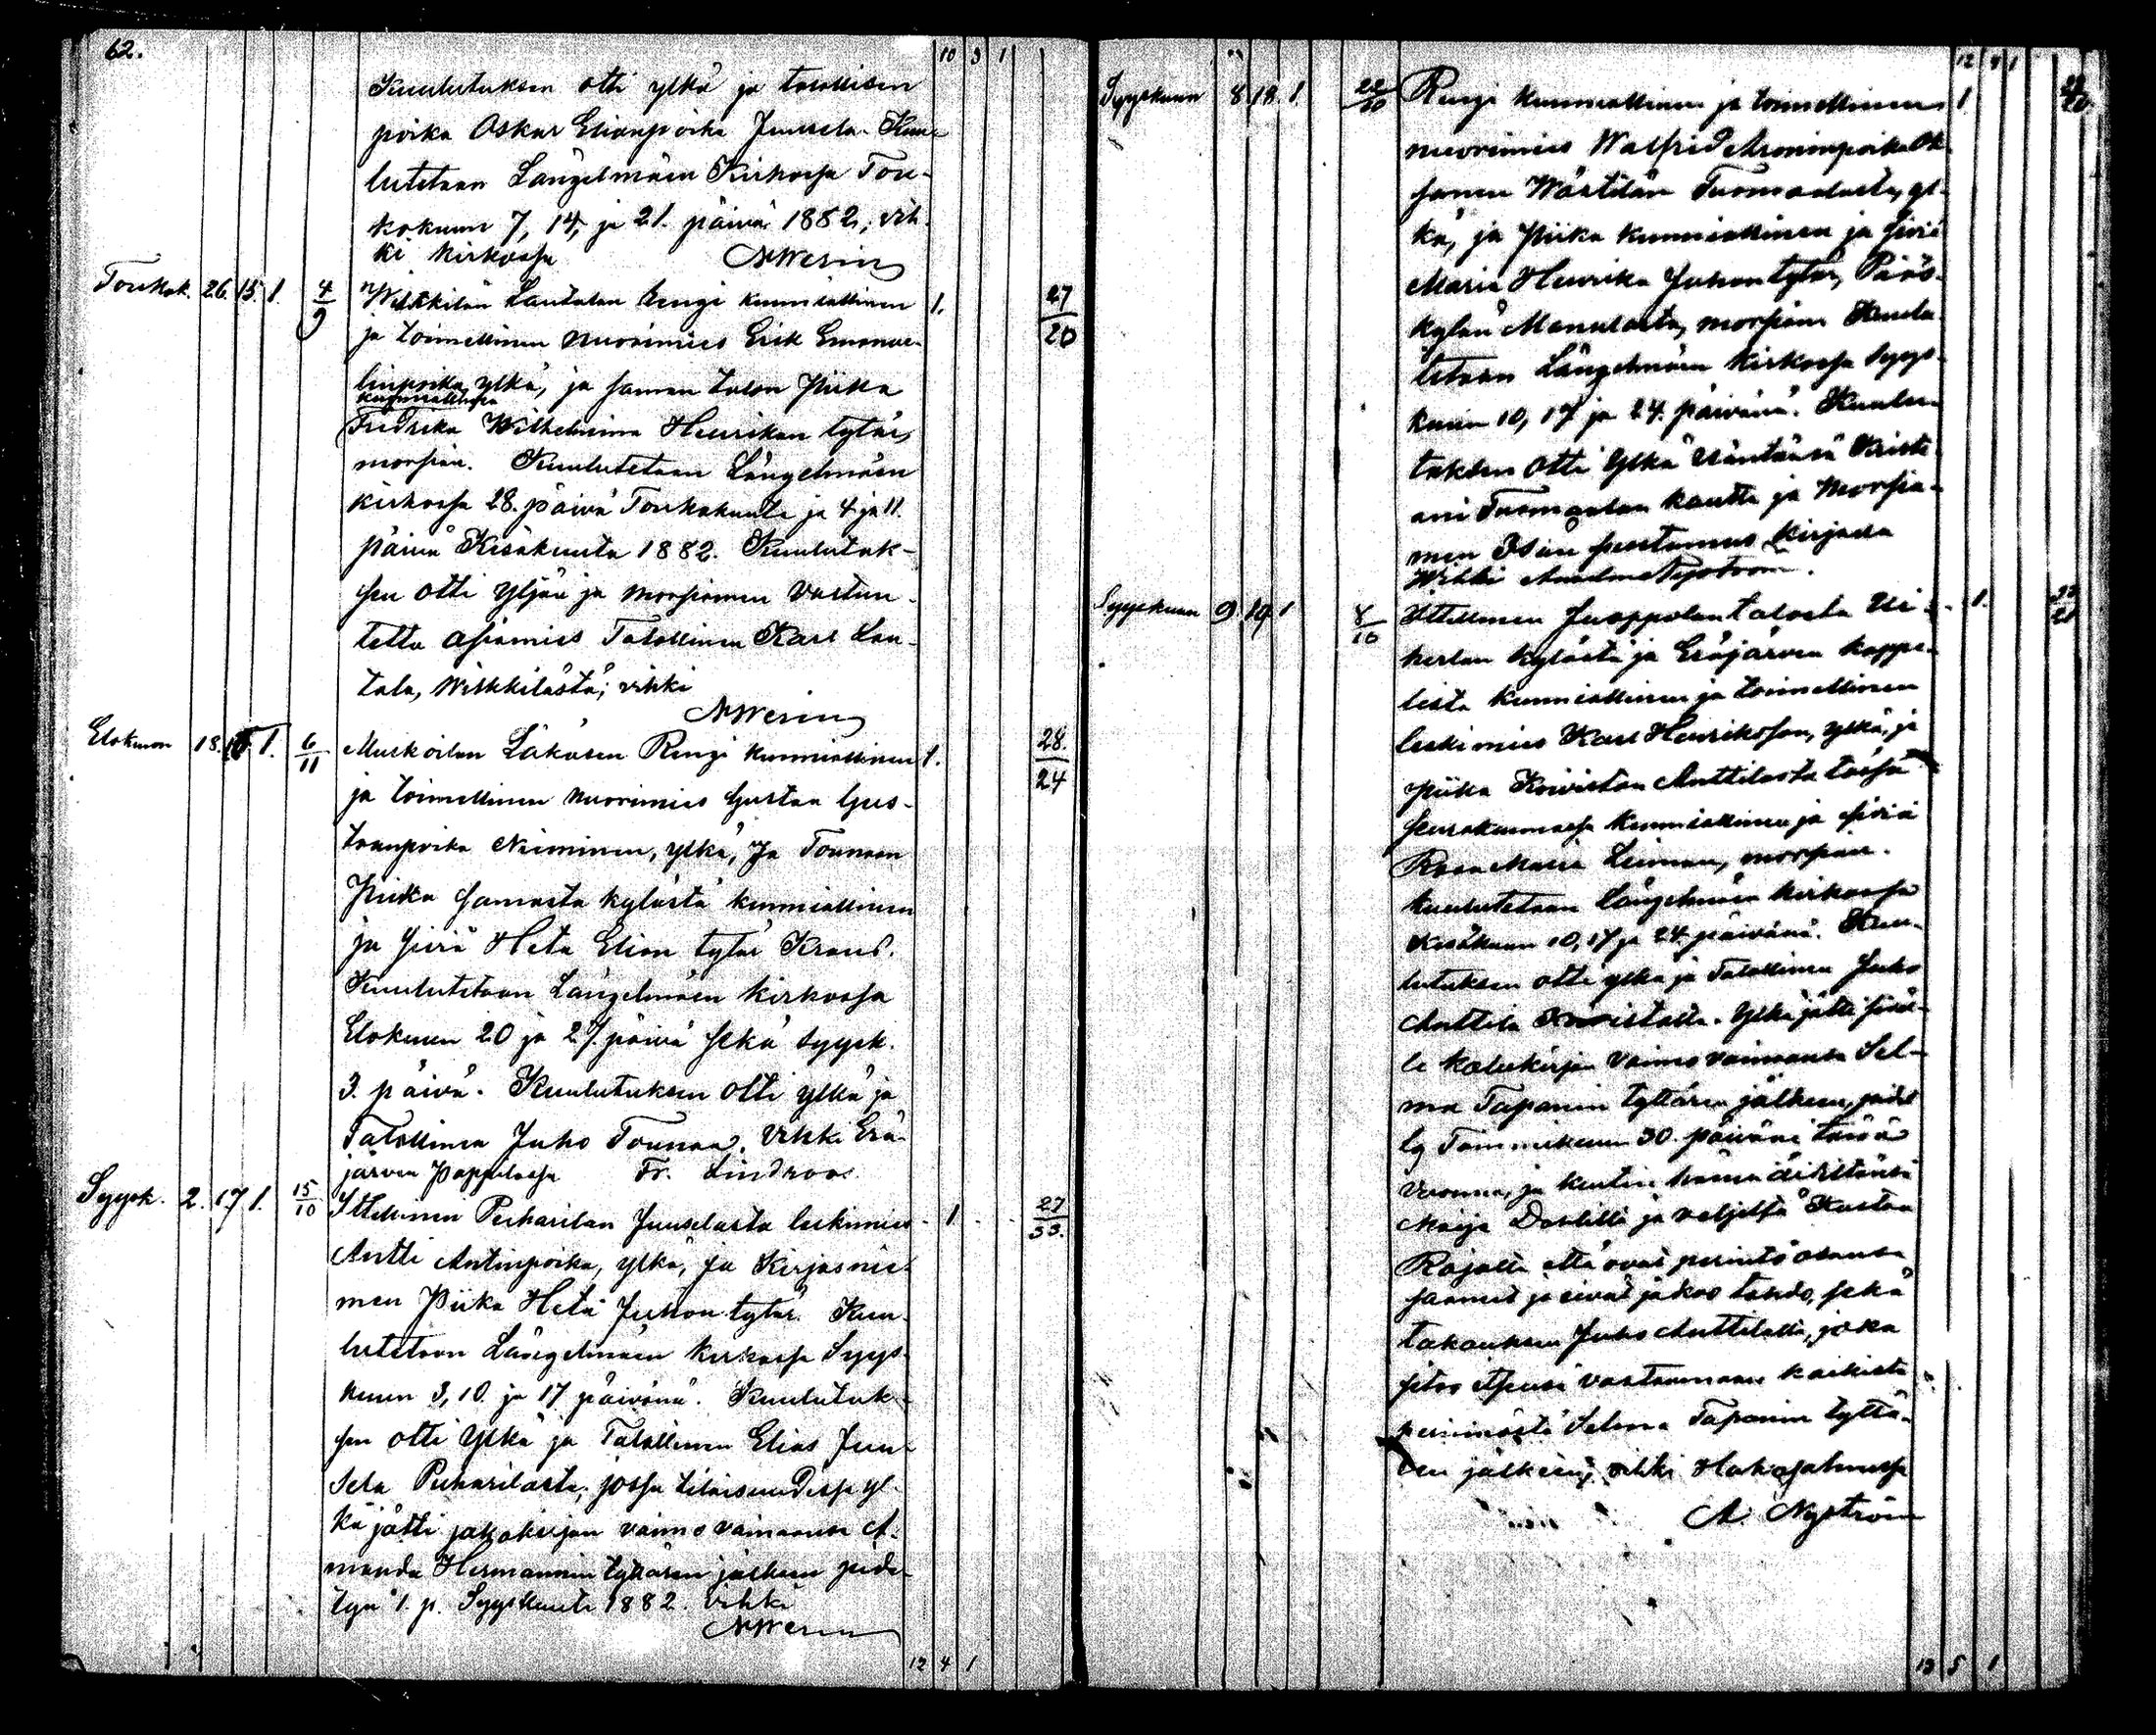 62.
10 3 1
Kuulutuksen otti ylkä ja talollisen
poika Oskar Elianpoika Juusela. Kuu-
lutetaan Längelmäen Kirkossa Tou-
kokuun 7, 14, ja 21. päivä 1882; vih-
ki kirkossa
Toukok. 26. 15. 1. 4/9 Wilkkilän Lautalan Rengi kunniallinen 1. 27/20
ja toimellinen nuorimies Erik Emanue-
linpoika, ylkä, ja saman talon Piika
kunniallinen
Fredrika Wilhelmina Henrikan tytär,
morsian. Kuulutetaan Längelmäen
kirkossa 28. päivä Toukokuuta ja 4 ja 11.
päivä Kesäkuuta 1882. Kuulutuk-
sen otti yljän ja morsiamen vastuu-
tettu asiamies Talollinen Karl Lau-
tala, Wilkkilästä; vihki
Elokuun 18. 16. 1. 6/11 Muskoilan Lukasen Rengi kunniallinen 1. 28./24
ja toimellinen nuorimies Gustaa Gus-
taanpoika Nieminen, ylkä, Ja Tounaan
Piika samasta kylästä kunniallinen
ja siviä Heta Elian tytär Kraus.
Kuulutetaan Längelmäen kirkossa
Elokuun 20 ja 27. päivä sekä syysk.
3. päivä. Kuulutuksen otti ylkä ja
Talollinen Juho Tounaa. Vihki Erä-
järven Pappilassa Fr. Lindroos.
Syysk. 2. 17 1. 15/10 Itellinen Puharilan Juuselasta leskimies 1 27/33.
Antti Antinpoika, ylkä, ja Kirjasnie-
men Piika Heta Juhon tytär. Kuu-
lutetaan Längelmäen kirkossa Syys-
kuun 3, 10. ja 17 päivänä. Kuulutuk-
sen otti ylkä ja Talollinen Elias Juu-
sela Puharilasta, jossa tilaisuudessa yl-
kä jätti jakokirjan vaimo vainaansa A-
manda Hermannin tyttären jälkeen pide-
tyn 1. p. Syyskuuta 1882. Vihki
12 4 1
12 4 1
Syyskuun 8. 18. 1. 22/10 Rengi kunniallinen ja toimellinen 1
nuorimies Walfrid Aroninpoika Ok-
sanen Wästilän Tuomaalasta, yl-
kä, ja Piika kunniallinen ja siviä
Maria Henrika Juhontytär, Pääs-
kylän Manulasta, morsian Kuulu-
tetaan Längelmäen kirkossa Syys-
kuun 10, 17 ja 24. päivänä. Kuulu-
tuksen otti ylkä isäntänsä Kristi-
ani Tuomaalan kautta ja Morsia-
men Isän suostumus kirjalla
Wihki Nyström.
Syyskuun 9. 19. 1 8/10 Itellinen Juoppolan talosta Ui- 1.
herlan kylästä ja Eräjärven kappe-
lista kunniallinen ja toimellinen
leskimies Karl Henriksson, ylkä, ja
piika Koiviston Anttilasta tässä
seurakunnassa kunniallinen ja siviä
Rosa Maria Leiman, morsian.
kuulutetaan Längelmäen kirkossa
Kesäkuun 10, 17 ja 24. päivänä. Kuu-
lutuksen otti ylkä ja Talollinen Juho
Anttila Koivistolta. Ylkä jätti sisäl-
le kalukirjan vaimo vainaansa Sel-
ma Tapanin tyttären jälkeen, pidet-
ty Tammikuun 30. päivänä tässä
vuonna, ja
Maija ja veljeltä Kustaa
Rajalla että ovat perintö osansa
saaneet ja eivät jakoo tahdo, sekä
takauksen Juho Anttilalta, joka
sitoo itsensä vastaamaan kaikista
perinnöstä Selma Tapanin tyttä-
ren jälkeen; vihki Hakosalmessa
A. Nyström
13 5 1